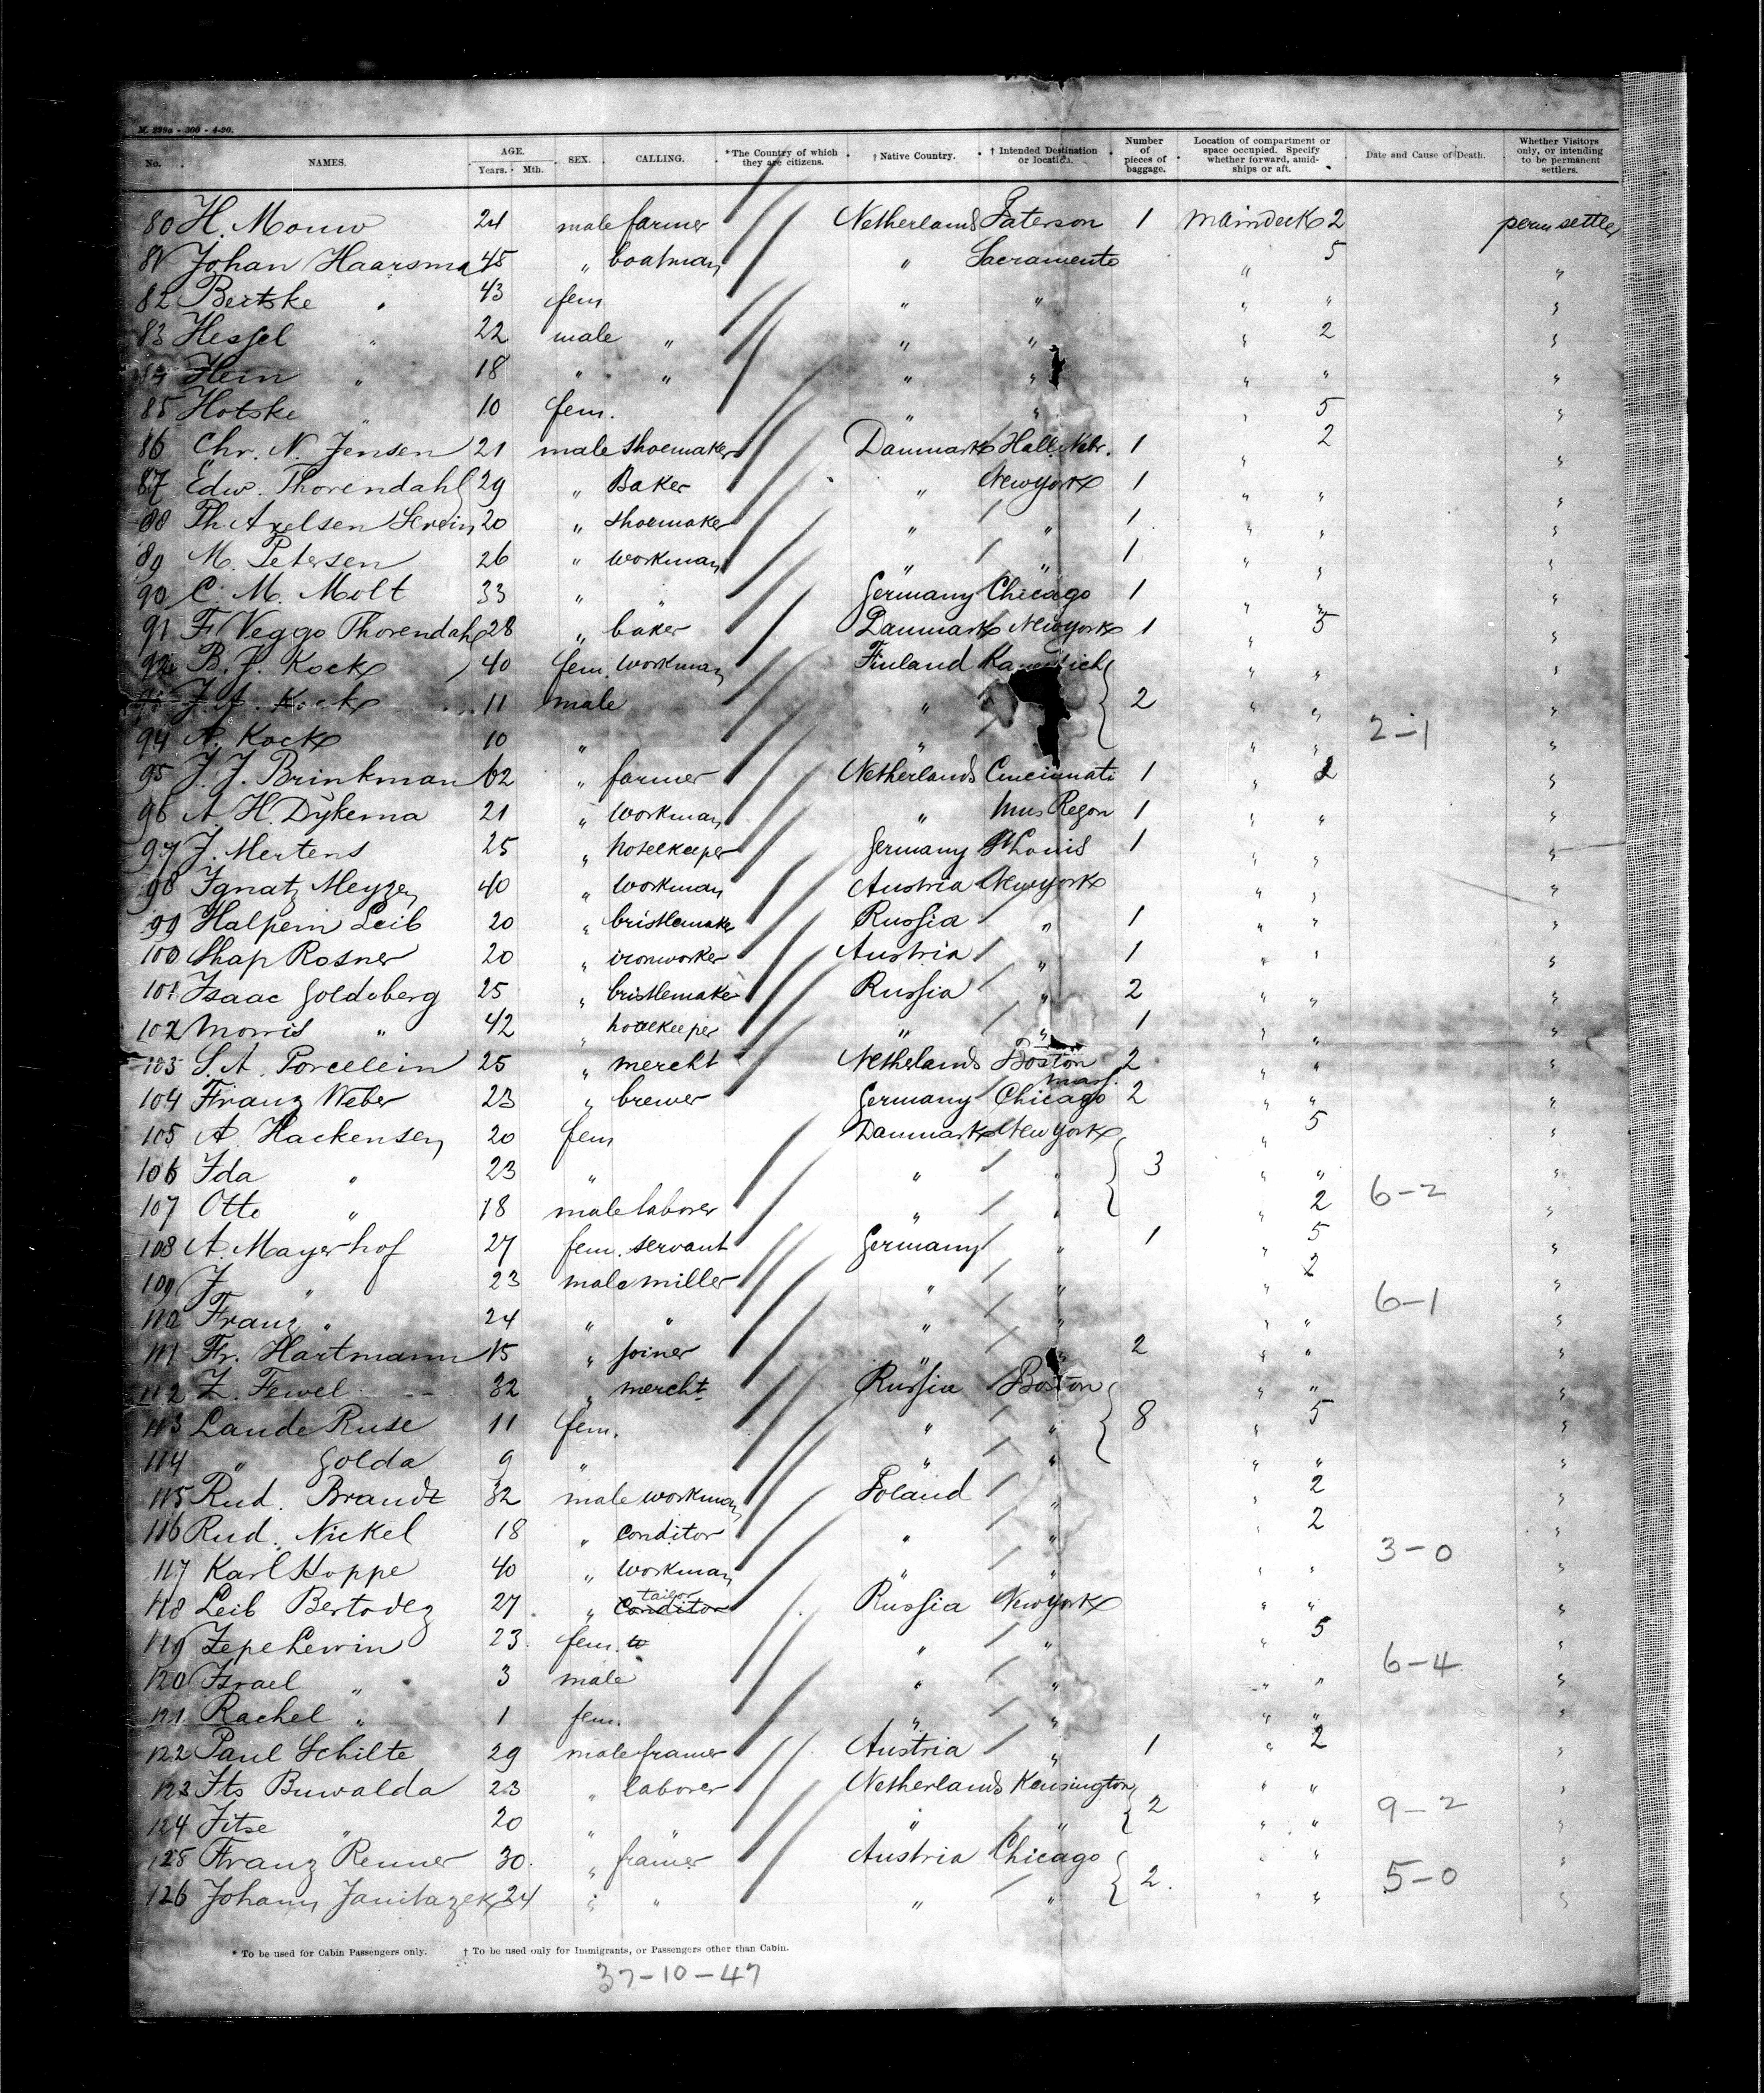 M. 299a - 300 - 4-90.
No. NAMES. AGE. Years. Mth. SEX. CALLING. *The Country of which they are citizens. † Native Country. † Intended Destination or location. Number of pieces of baggage. Location of compartment or space occupied. Specify whether forward, amidships or aft. Date and Cause of Death. Whether Visitors only, or intending to be permanent settlers.
80 H. Mouw 24 male farmer Netherlands Paterson 1 Maindeck 2 perm settler
81 Johan Haarsma 45 " boatman " Sacramento " 5 "
82 Beitske " 43 fem " " " " "
83 Hessel " 22 male " " " " 2 "
84 Hein " 18 " " " " " " "
85 Hotske " 10 fem. " " " 5 "
86 Chr. N. Jensen 21 male shoemaker Danmark Hall. Nebr. 1 " 2 "
87 Edw. Thorendahl 29 " Baker " New york 1 " " "
88 Th. Axelsen 20 " shoemaker " " 1 " " "
89 M. Petersen 26 " workman " " 1 " " "
90 C. M. Molt 33 " " Germany Chicago 1 " " "
91 F Veggo Thorendahl 28 " baker Danmark New york 1 " 5 "
92 B. J. Kock 40 fem. workman Finland " " "
93 J. A. Kock 11 male " 2 " " "
94 A. Kock 10 " " " " 2-1 "
95 J. J. Brinkman 62 " farmer Netherlands Cincinnati 1 " 2 "
96 A. H. Dykema 21 " workman " Mus Regon 1 " " "
97 J. Mertens 25 " hotelkeeper Germany St Louis 1 " " "
98 Ignatz Meyzen 40 " workman Austria New york " " "
99 Halpern Leib 20 " bristlemaker Russia " 1 " " "
100 Shap Rosner 20 " ironworker Austria " 1 " " "
101 Isaac Goldeberg 25 " bristlemaker Russia " 2 " " "
102 Morris " 42 " hotelkeeper " " 1 " " "
103 S. A. Porcelein 25 " mercht Netherlands Boston Mass. 2 " " "
104 Franz Weber 23 " brewer Germany Chicago 2 " " "
105 A. Hackensen 20 fem Danmark New york " 5 "
106 Ida " 23 " " " 3 " " "
107 Otto " 18 male laborer " " " 2 6-2 "
108 A. Mayerhof 27 fem. servant Germany " 1 " 5 "
109 J " 23 male miller " " " 2 "
110 Franz " 24 " " " " " " 6-1 "
111 Fr. Hartmann 15 " joiner " " 2 " " "
112 Z. Fewel 32 " mercht. Russia Boston " " "
113 Lande Ruse 11 fem. " " 8 " 5 "
114 " Golda 9 " " " " " "
115 Rud. Brandt 32 male workman Poland " " 2 "
116 Rud. Nickel 18 " conditor " " " 2 "
117 Karl Hoppe 40 " workman " " " " 3-0 "
118 Leib Bertodez 27 " conditor tailor Russia New york " " "
119 Zepe Lewin 23 fem. " " " 5 "
120 Israel " 3 male " " " " 6-4 "
121 Rachel " 1 fem. " " " " "
122 Paul Schilte 29 male framer Austria " 1 " 2 "
123 Its Buwalda 23 " laborer Netherlands Kensington " " "
124 Fitse " 20 " " " " 2 " " 9-2 "
125 Franz Renner 30 " framer Austria Chicago " " "
126 Johann 24 " " " " 2. " " 5-0 "
* To be used for Cabin Passengers only. † To be used only for Immigrants, or Passengers other than Cabin.
37-10-47